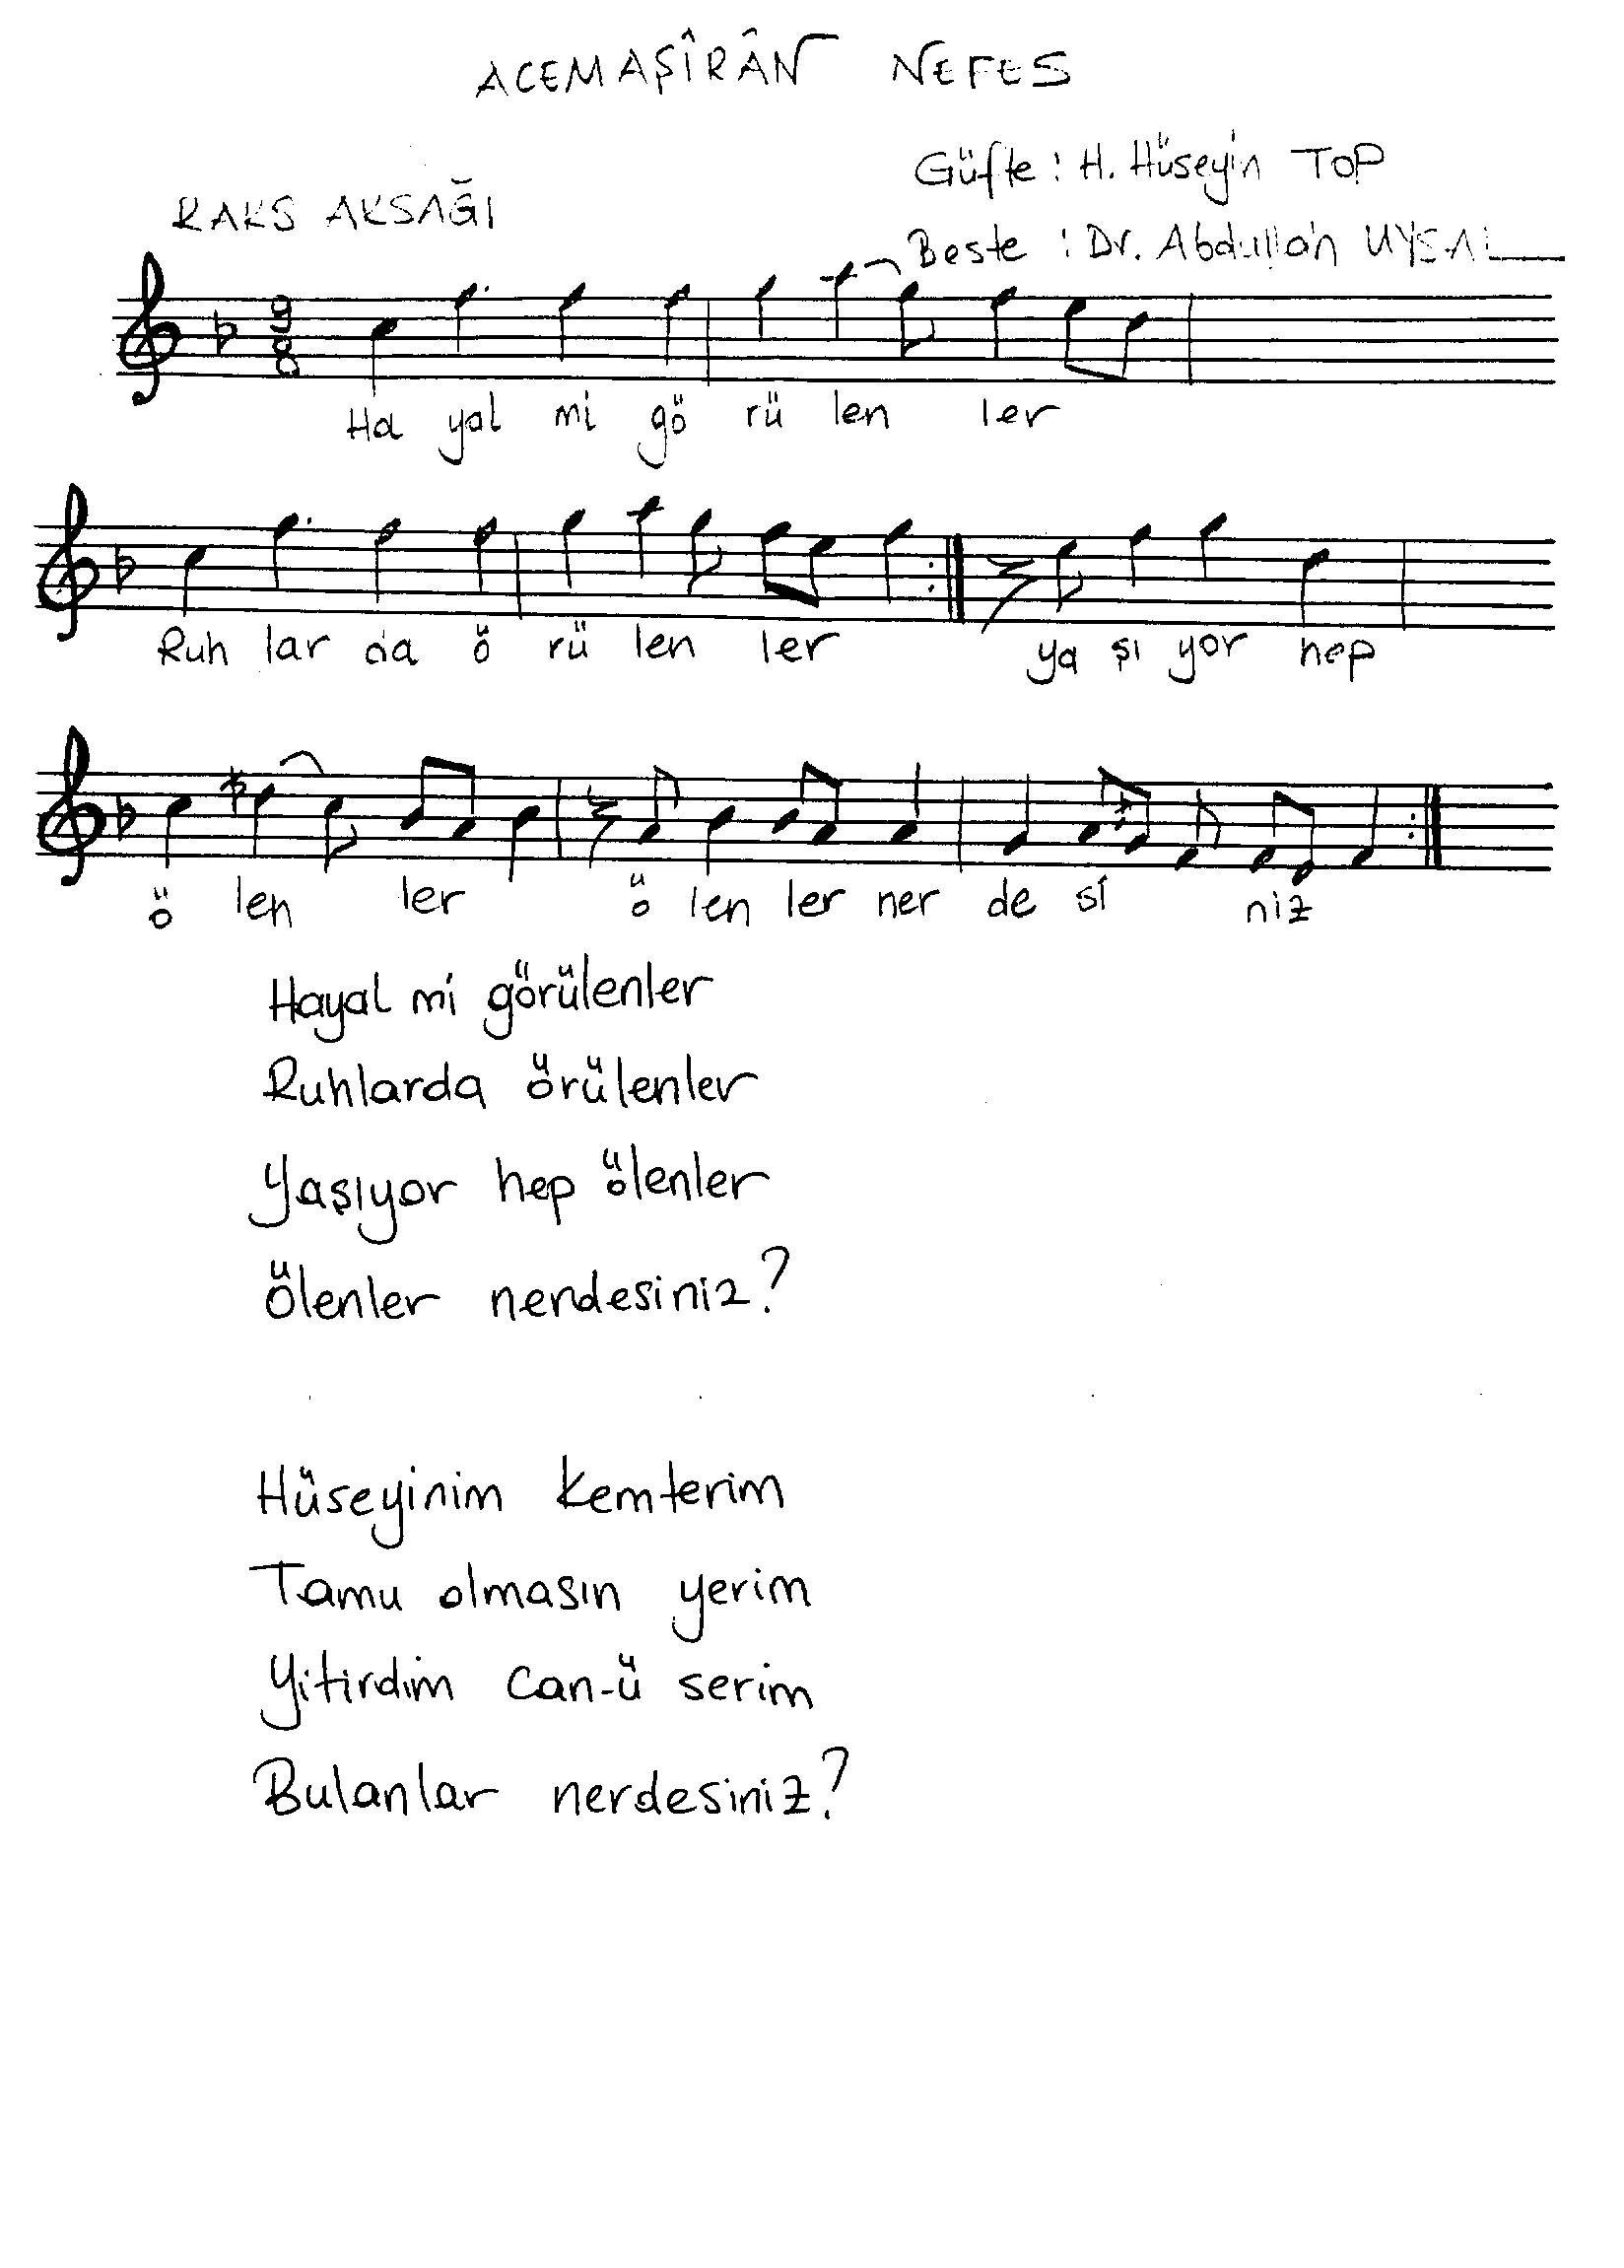 ACEMAŞÎRÂN NEFES
Güfte : H. Hüseyin TOP
RAKS AKSAĞI
Beste : Dr. Abdullah UYSAL
9
8
Ha yal mi gö rü len ler
Ruh lar da ö rü len ler ya şı yor hep
ö len ler ö len ler ner de si niz
Hayal mi görülenler
Ruhlarda örülenler
Yaşıyor hep ölenler
Ölenler nerdesiniz?
Hüseyinim kemterim
Tamu olmasın yerim
Yitirdim can-ü serim
Bulanlar nerdesiniz?